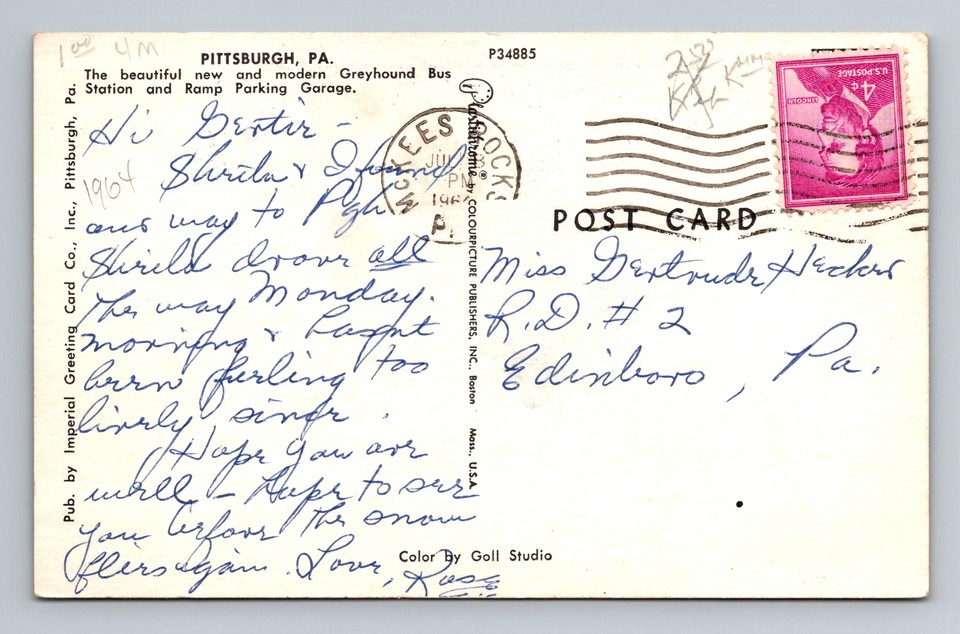 1 00 4M
PITTSBURGH, PA.
The beautiful new and modern Greyhound Bus
Station and Ramp Parking Garage.
P34885
Hi Gertie -
Sheila & I found
our way to Pgh
Sheila drove all
the way Monday.
morning & hasn't
been feeling too
lively since.
Hope you are
well - hope to see
you before the snow
flies again. Love, Rose
1964
Pub. by Imperial Greeting Card Co., Inc., Pittsburgh, Pa.
McKEES ROCKS
PM
PA.
Plastichrome ® by COLOURPICTURE PUBLISHERS, INC., Boston Mass., U.S.A.
U.S. POSTAGE
4¢
LINCOLN
POST CARD
Miss Gertrude Hecker
R.D. # 2
Edinboro, Pa.
Color by Goll Studio